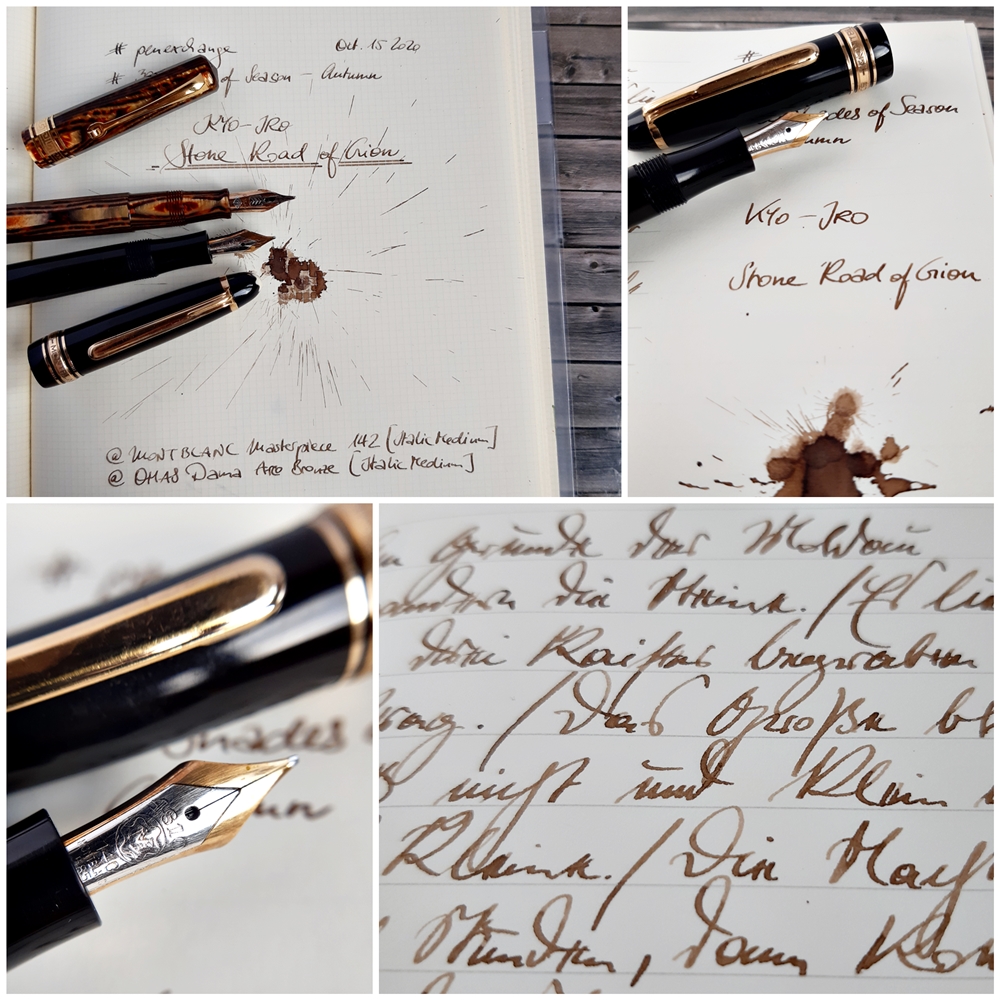 # penexchange Oct. 15 2020
# of Season - Autumn
KYO-IRO
Stone Road of Gion
@ MONTBLANC Masterpiece 142 [Italic Medium]
@ OMAS Dama Arco Bronze [Italic Medium]
#
des of Season
umn
KYO-IRO
Stone Road of Gion
#
Shades
un
Grunde der Moldau
wandern die Steine. / Es lie
drei Kaiser begraben
Prag. / Das Große bl
nicht und klein
Kleine. / Die Nach
Stunden, dann kom